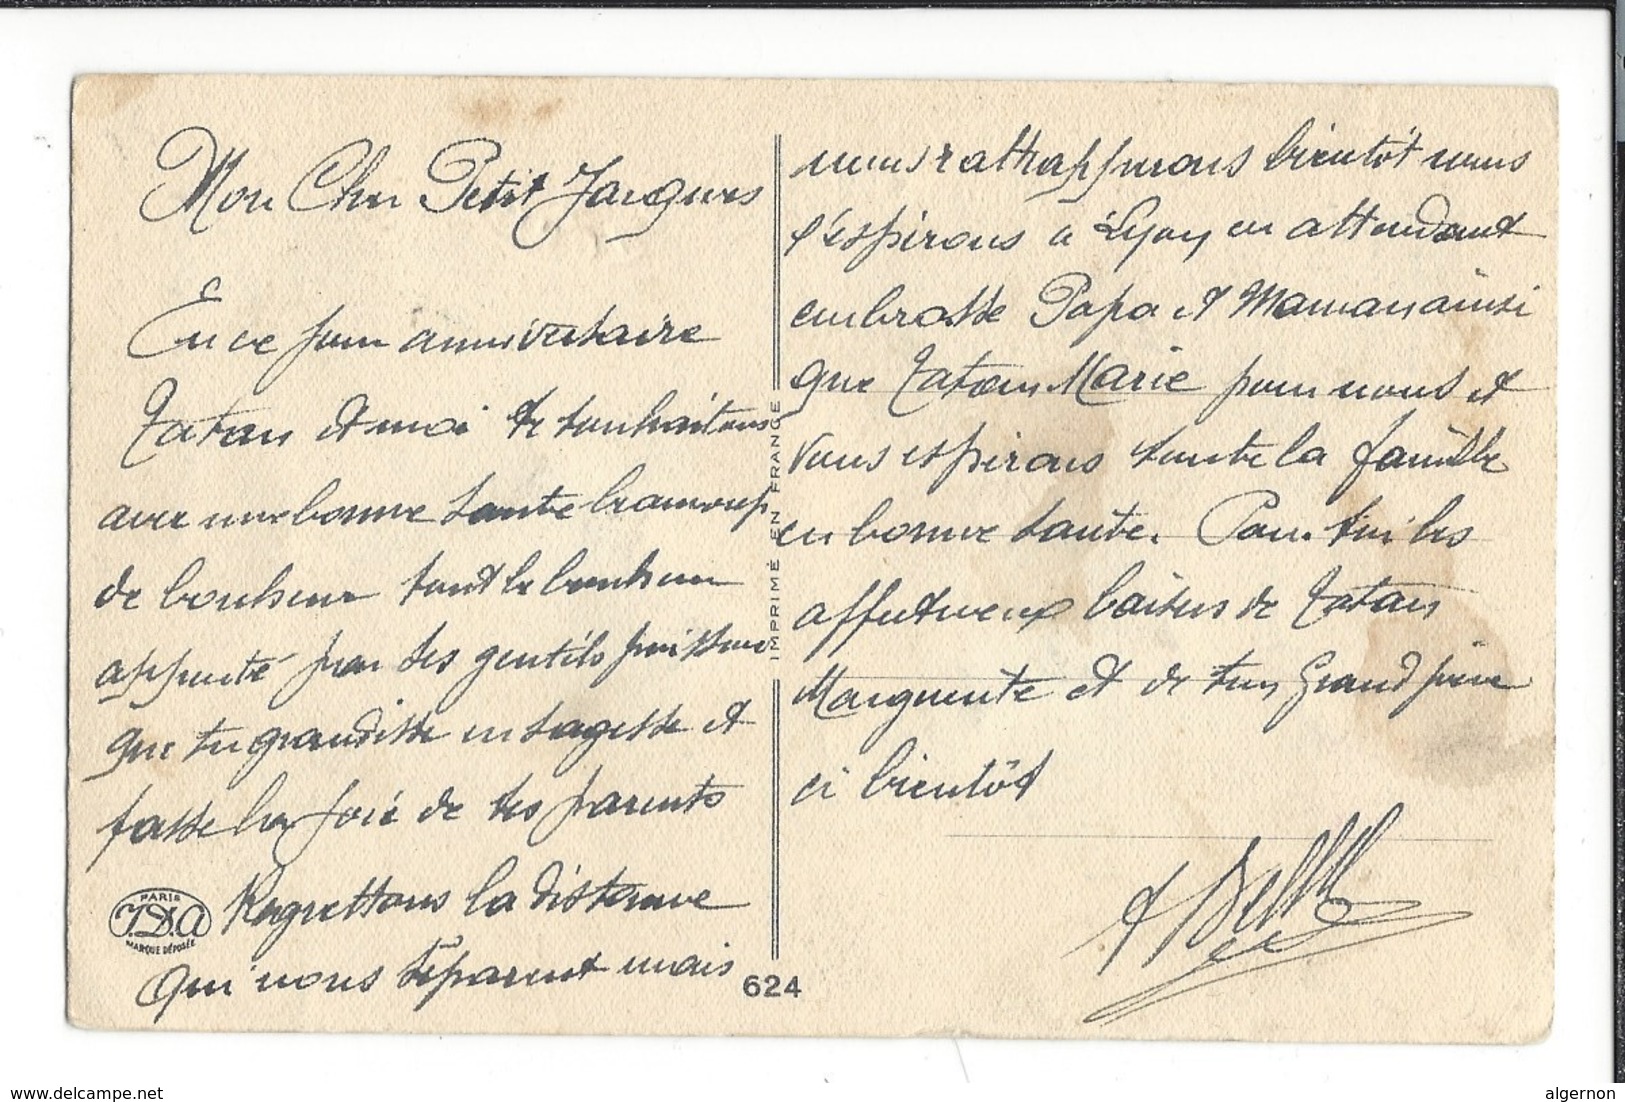 Mon Cher Petit Jacques
En ce jour anniversaire
Tatan et moi te souhaitons
avec une bonne santé beaucoup
de bonheur tout le bonheur
apporté par tes gentils
que tu grandisse en sagesse et
fasse la joie de tes parents
Regrettons la distance
qui nous séparent mais
PARIS
J.D.A
MARQUE DÉPOSÉE
IMPRIMÉ EN FRANCE
624
nous rattapperons bientôt nous
l'espérons à Lyon en attendant
embrasse Papa et Maman ainsi
que Tatan Marie pour nous et
vous espérons toute la famille
en bonne santé. Pour toi les
affectueux baisers de Tatan
Marguerite et de ton Grand père
à bientôt
www.delcampe.net
algernon